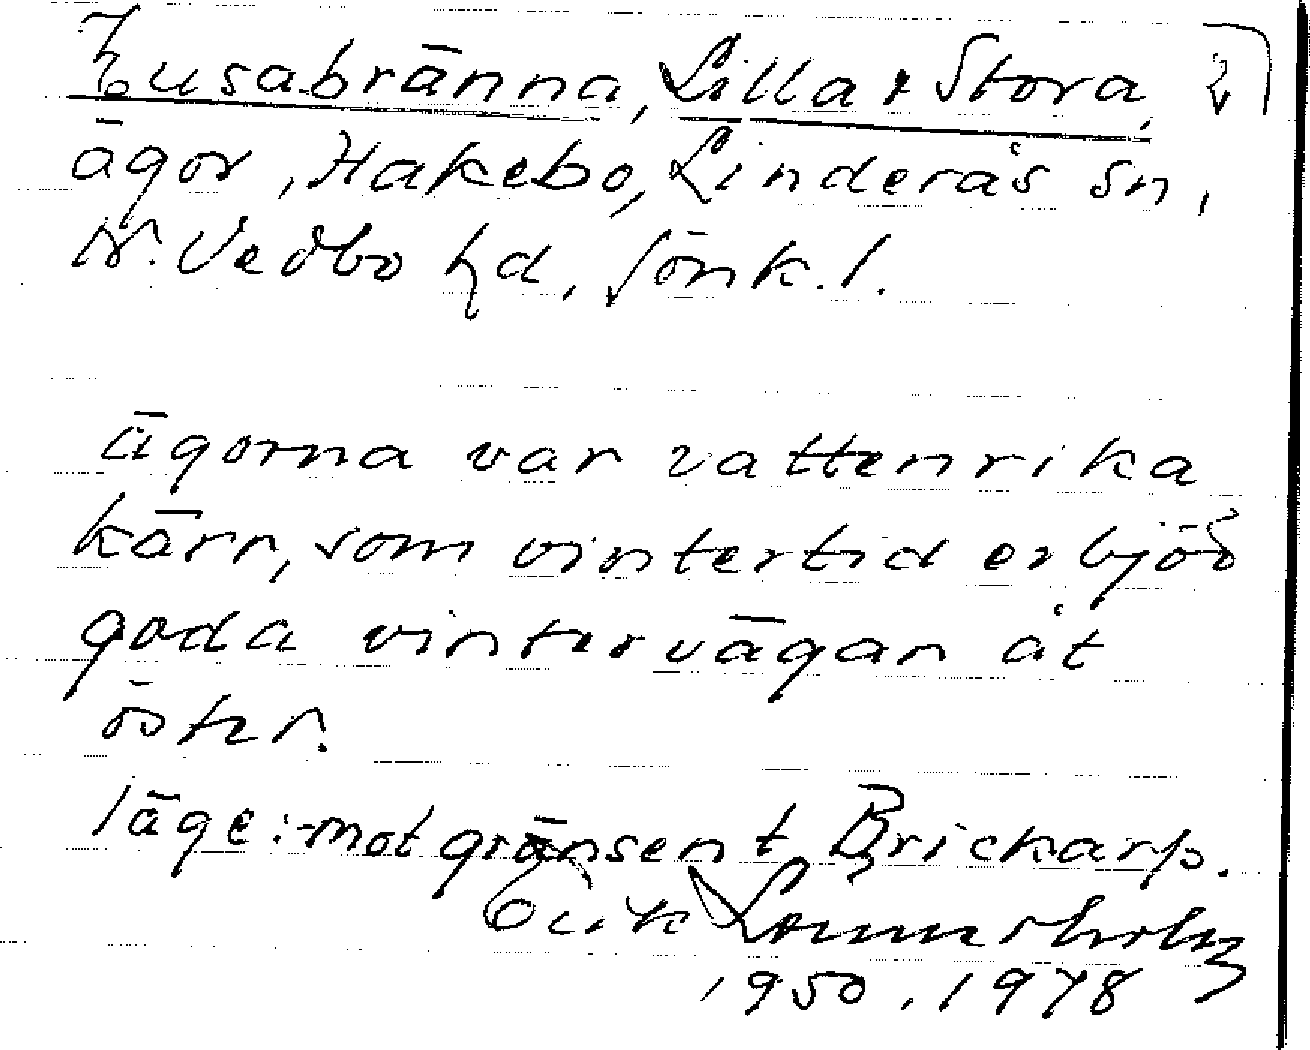 Husabränna, Lilla & Stora,
ägor, Hakebo, Linderås sn,
N. Vedbo hd, Jönk. l.
ägorna var vattenrika
kärr, som vintertid erbjöd
goda vintervägan åt
öster.
läge: mot gränsen t. Brickarp.
Erik
1950, 1978